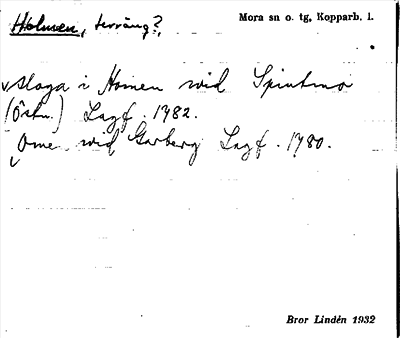 Holmen, terräng?, Mora sn o. tg, Kopparb. l.
sloga i Homen wid Spintmo
(Östn.) Lagf. 1782.
Ome wid Garberg Lagf. 1780.
Bror Lindén 1932